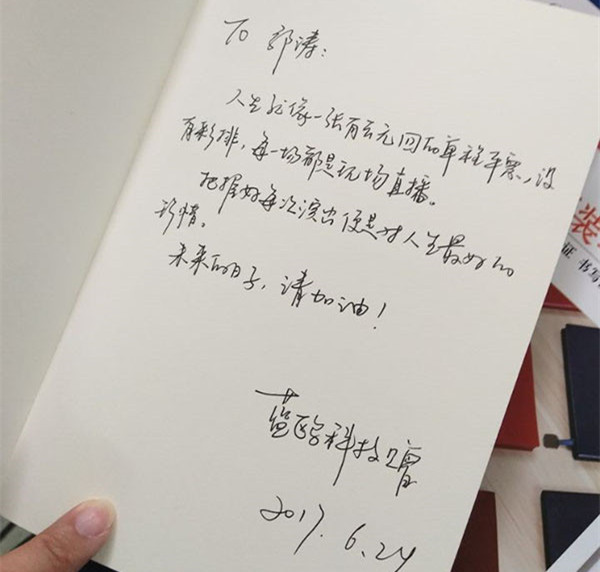 TO 郭涛:
人生就像一张有去无回的单程车票,没
有彩排,每一场都是现场直播。
把握好每次演出便是对人生最好的
珍惜。
未来的日子,请加油!
蓝鸥科技赠
2017.6.24
装
证 书写